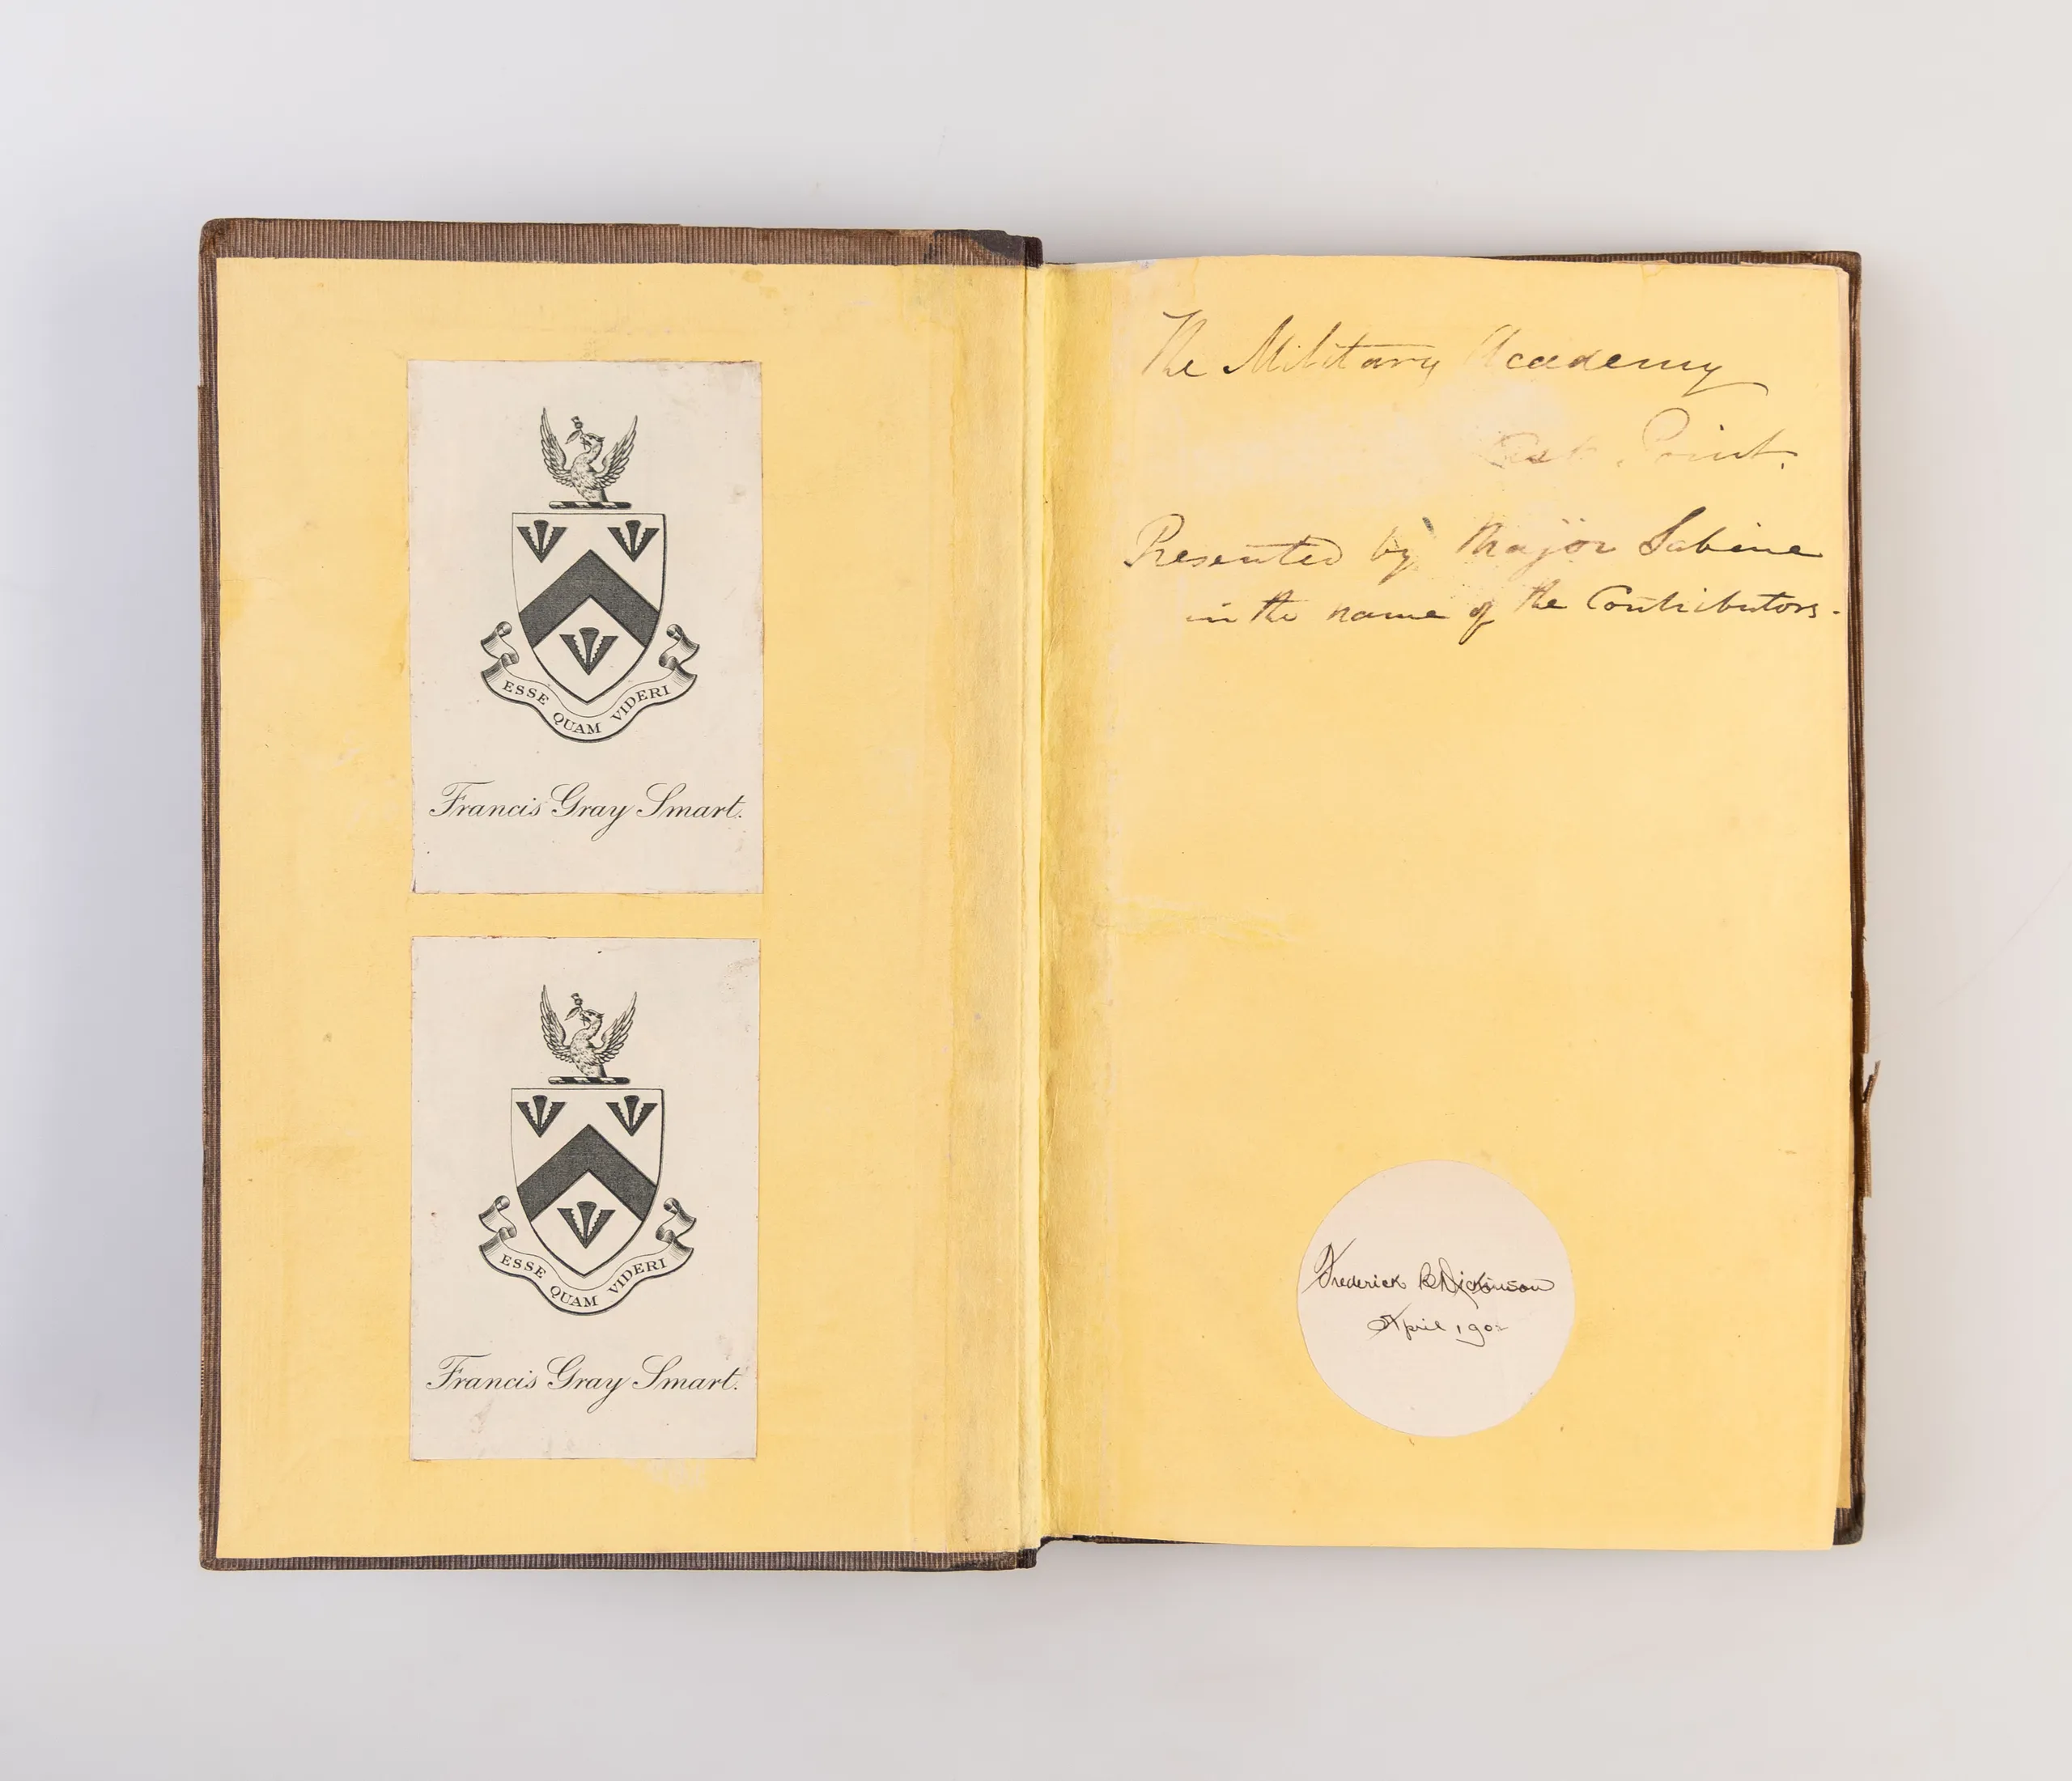 ESSE QUAM VIDERI
Francis Gray Smart.
ESSE QUAM VIDERI
Francis Gray Smart.
The Military Academy
Point.
Presented by Major Sabine
in the name of the Contributors.
Frederick B Dickinson
April